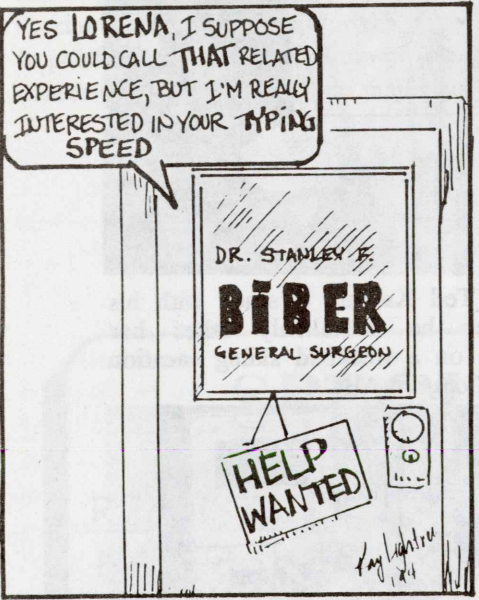 YES LORENA, I SUPPOSE
YOU COULD CALL THAT RELATED
EXPERIENCE, BUT I'M REALLY
INTERESTED IN YOUR TYPING
SPEED
DR. STANLEY E.
BIBER
GENERAL SURGEON
HELP
WANTED